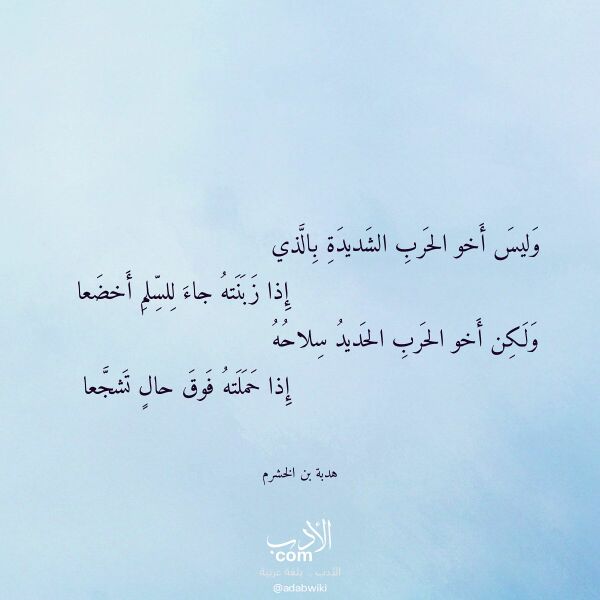 وَليسَ أَخو الحَربِ الشَديدَةِ بِالَّذي
إِذا زَبَنَتهُ جاءَ لِلسِّلمِ أَخضَعا
وَلَكِن أَخو الحَربِ الحَديدُ سِلاحُهُ
إِذا حَمَلَتهُ فَوقَ حالٍ تَشجَّعا
هدبة بن الخشرم
الأدب
com
الأدب .. بلغة عربية
@adabwiki